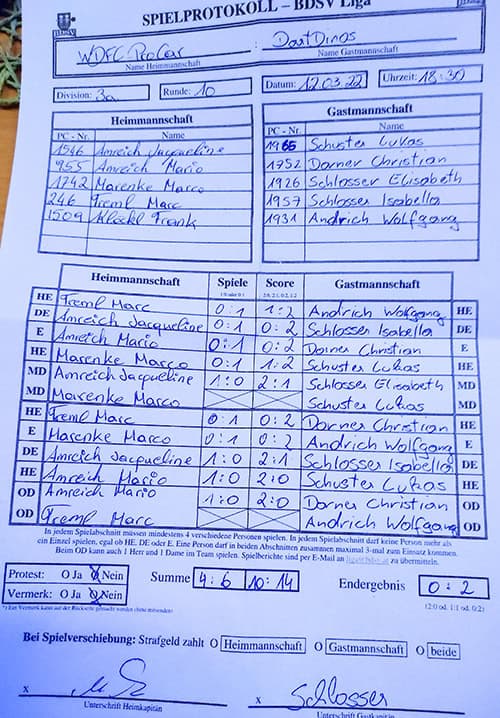 SPIELPROTOKOLL – BDSV Liga
WDFC ProCar : DartDinos
Name Heimmannschaft Name Gastmannschaft
Division: 3a Runde: 10 Datum: 12.03.22 Uhrzeit: 18:30
Heimmannschaft Gastmannschaft
PC - Nr. Name PC - Nr. Name
1546 Amreich Jacqueline 1965 Schuster Lukas
955 Amreich Mario 1752 Dorner Christian
1742 Marenke Marco 1926 Schlosser Elisabeth
246 Treml Marc 1957 Schlosser Isabella
1509 Klöckl Frank 1931 Andrich Wolfgang
Heimmannschaft Spiele Score Gastmannschaft
1:0 oder 0:1 2:0, 2:1, 0:2, 1:2
HE Treml Marc 0:1 1:2 Andrich Wolfgang HE
DE Amreich Jacqueline 0:1 0:2 Schlosser Isabella DE
E Amreich Mario 0:1 0:2 Dorner Christian E
HE Marenke Marco 0:1 1:2 Schuster Lukas HE
MD Amreich Jacqueline 1:0 2:1 Schlosser Elisabeth MD
MD Marenke Marco Schuster Lukas MD
HE Treml Marc 0:1 0:2 Dorner Christian HE
E Marenke Marco 0:1 0:2 Andrich Wolfgang E
DE Amreich Jacqueline 1:0 2:1 Schlosser Isabella DE
HE Amreich Mario 1:0 2:0 Schuster Lukas HE
OD Amreich Mario 1:0 2:0 Dorner Christian OD
OD Treml Marc Andrich Wolfgang OD
In jedem Spielabschnitt müssen mindestens 4 verschiedene Personen spielen. In jedem Spielabschnitt darf keine Person mehr als
ein Einzel spielen, egal ob HE, DE oder E. Eine Person darf in beiden Abschnitten zusammen maximal 3-mal zum Einsatz kommen.
Beim OD kann auch 1 Herr und 1 Dame im Team spielen. Spielberichte sind per E-Mail an zu übermitteln.
Protest: O Ja O Nein Summe 4:6 10:14 Endergebnis 0:2
Vermerk: O Ja O Nein (2:0 od. 1:1 od. 0:2)
*) Ein Vermerk kann auf der Rückseite gemacht werden
Bei Spielverschiebung: Strafgeld zahlt O Heimmannschaft O Gastmannschaft O beide
x x Schlosser
Unterschrift Heimkapitän Unterschrift Gastkapitän